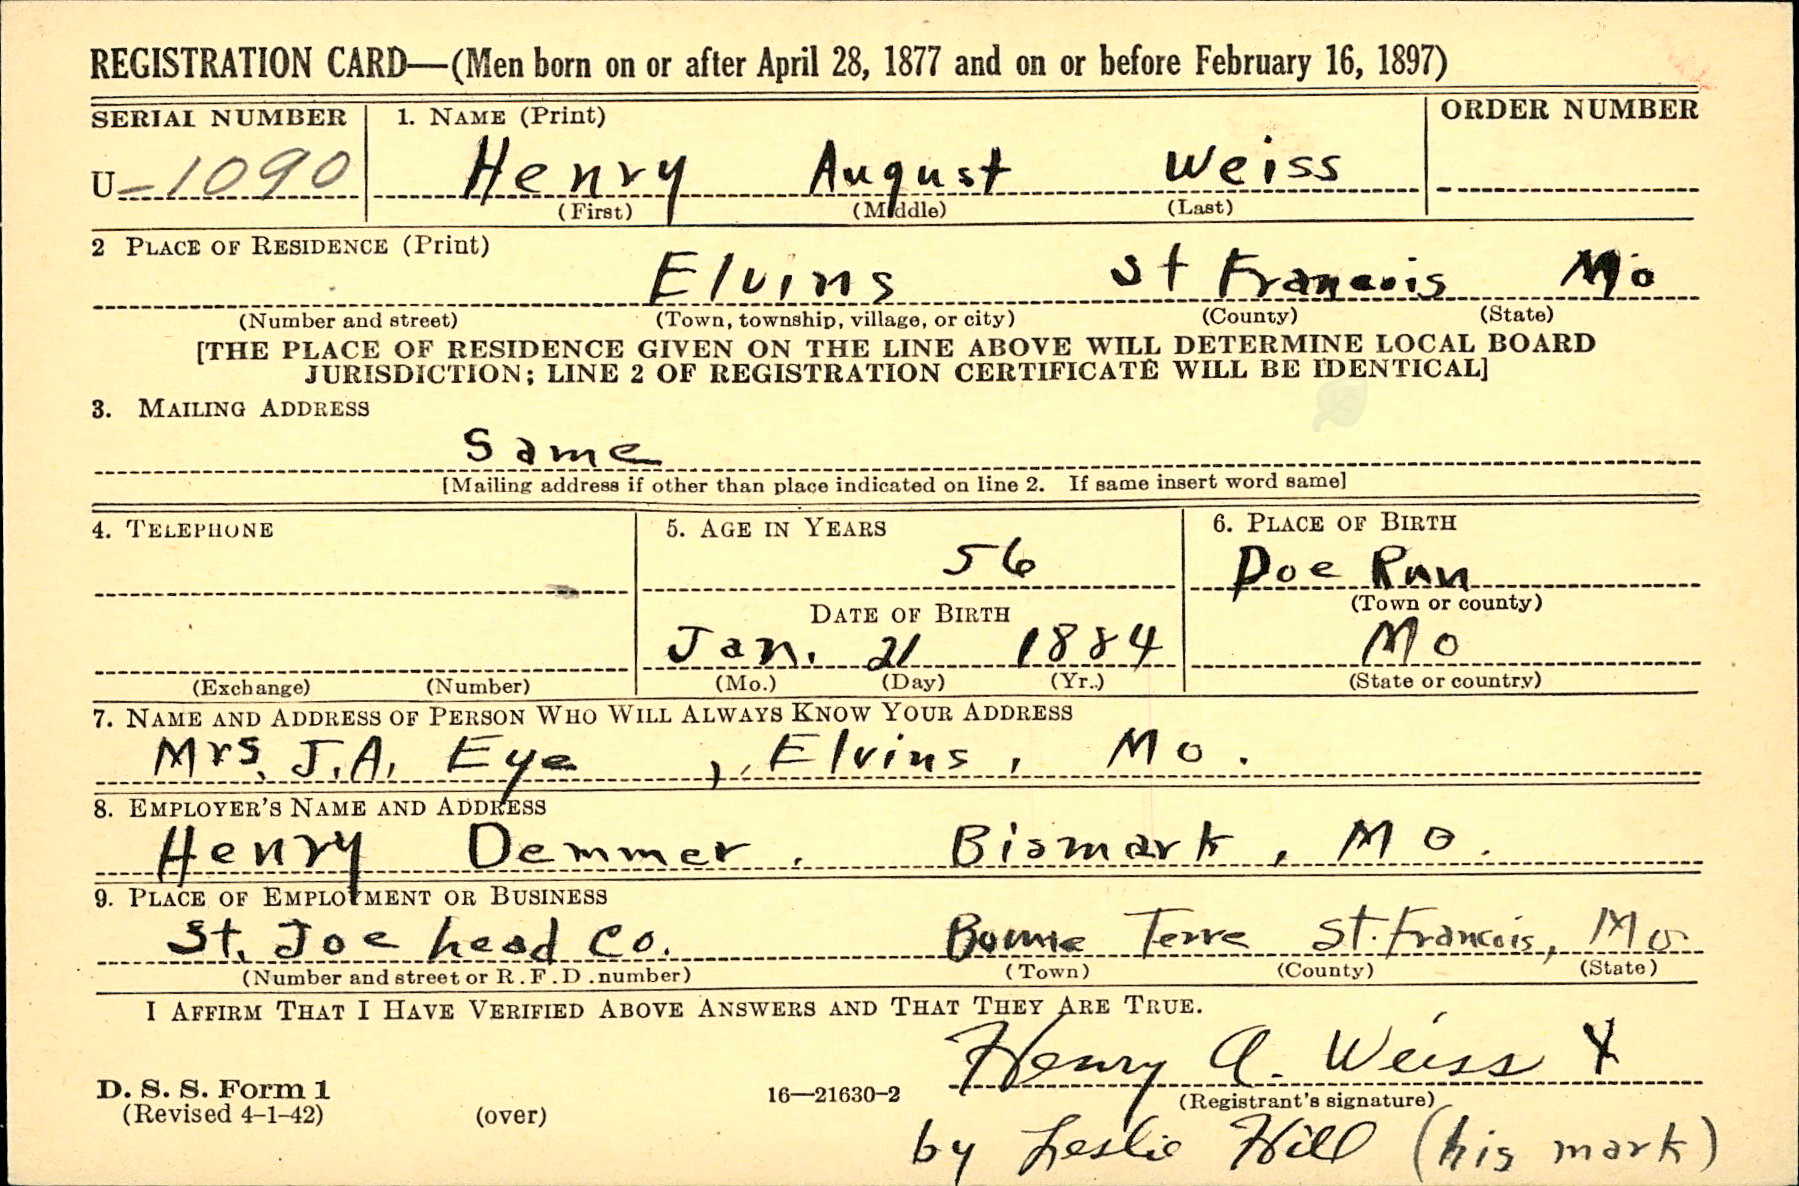 REGISTRATION CARD—(Men born on or after April 28, 1877 and on or before February 16, 1897)
SERIAL NUMBER 1. NAME (Print) ORDER NUMBER
U-1090 Henry August Weiss
(First) (Middle) (Last)
2 PLACE OF RESIDENCE (Print)
Elvins St Francois Mo
(Number and street) (Town, township, village, or city) (County) (State)
[THE PLACE OF RESIDENCE GIVEN ON THE LINE ABOVE WILL DETERMINE LOCAL BOARD
JURISDICTION; LINE 2 OF REGISTRATION CERTIFICATE WILL BE IDENTICAL]
3. MAILING ADDRESS
Same
[Mailing address if other than place indicated on line 2. If same insert word same]
4. TELEPHONE 5. AGE IN YEARS 6. PLACE OF BIRTH
56 Doe Run
DATE OF BIRTH (Town or county)
Jan. 21 1884 Mo
(Exchange) (Number) (Mo.) (Day) (Yr.) (State or country)
7. NAME AND ADDRESS OF PERSON WHO WILL ALWAYS KNOW YOUR ADDRESS
Mrs. J.A. Eye, Elvins, Mo.
8. EMPLOYER'S NAME AND ADDRESS
Henry Demmer. Bismark, Mo.
9. PLACE OF EMPLOYMENT OR BUSINESS
St. Joe Lead Co. Bonne Terre St. Francois, Mo.
(Number and street or R.F.D. number) (Town) (County) (State)
I AFFIRM THAT I HAVE VERIFIED ABOVE ANSWERS AND THAT THEY ARE TRUE.
Henry A. Weiss X
D. S. S. Form 1 16—21630-2 (Registrant's signature)
(Revised 4-1-42) (over)
by Leslie Hill (his mark)